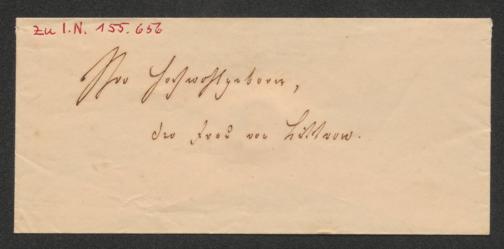 Zu I.N. 155.656
Ihro Hochwohlgeboren,
der Frau von Littrow.